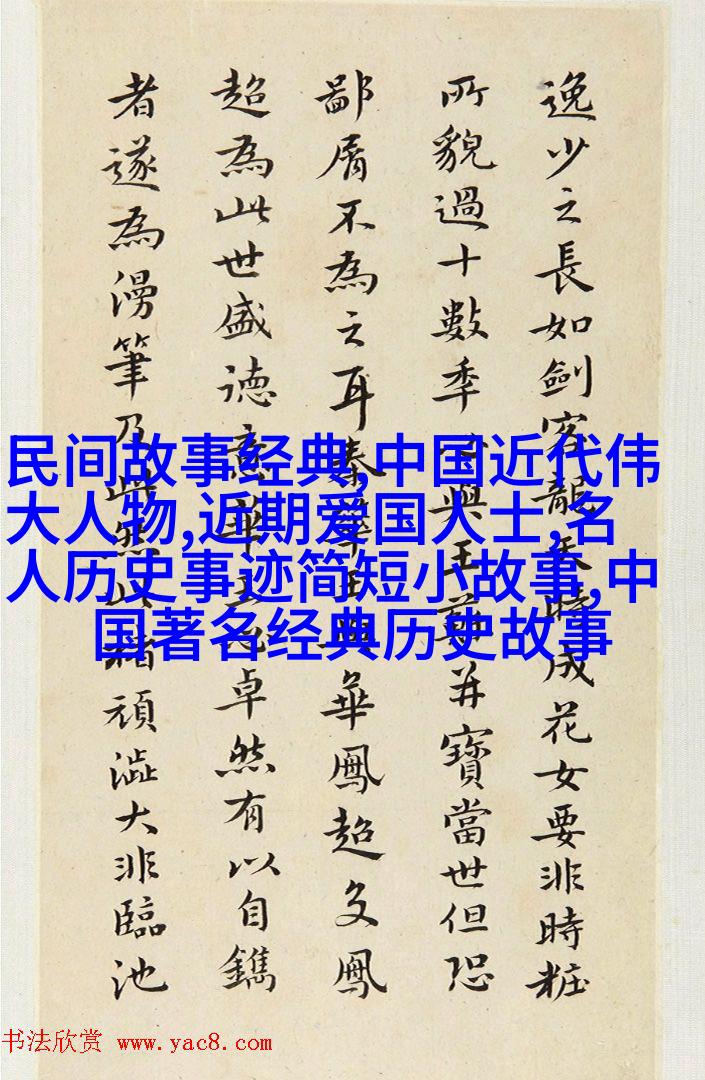 逸少之長如劍客龍天時成花女要非時粧
所貌過十數季與王并寶當世但恐
鄙屑不為之耳華鳳超鳳
超為此世盛德卓然有以自鐫
者遂為漫筆乃此然此楮頑澁大非臨池
民间故事经典,中国近代伟
大人物,近期爱国人士,名
人历史事迹简短小故事,中
国著名经典历史故事
书法欣赏 www.yac8.com